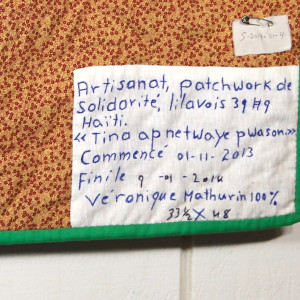 Artisanat, patchwork de
Solidorité, lilavois 39 #9
Haïti.
«Tina ap netwaye pwason.»
Commencé 01-11-2013
Finile 9 -01-2014
Véronique Mathurin 100%
33½ X 48